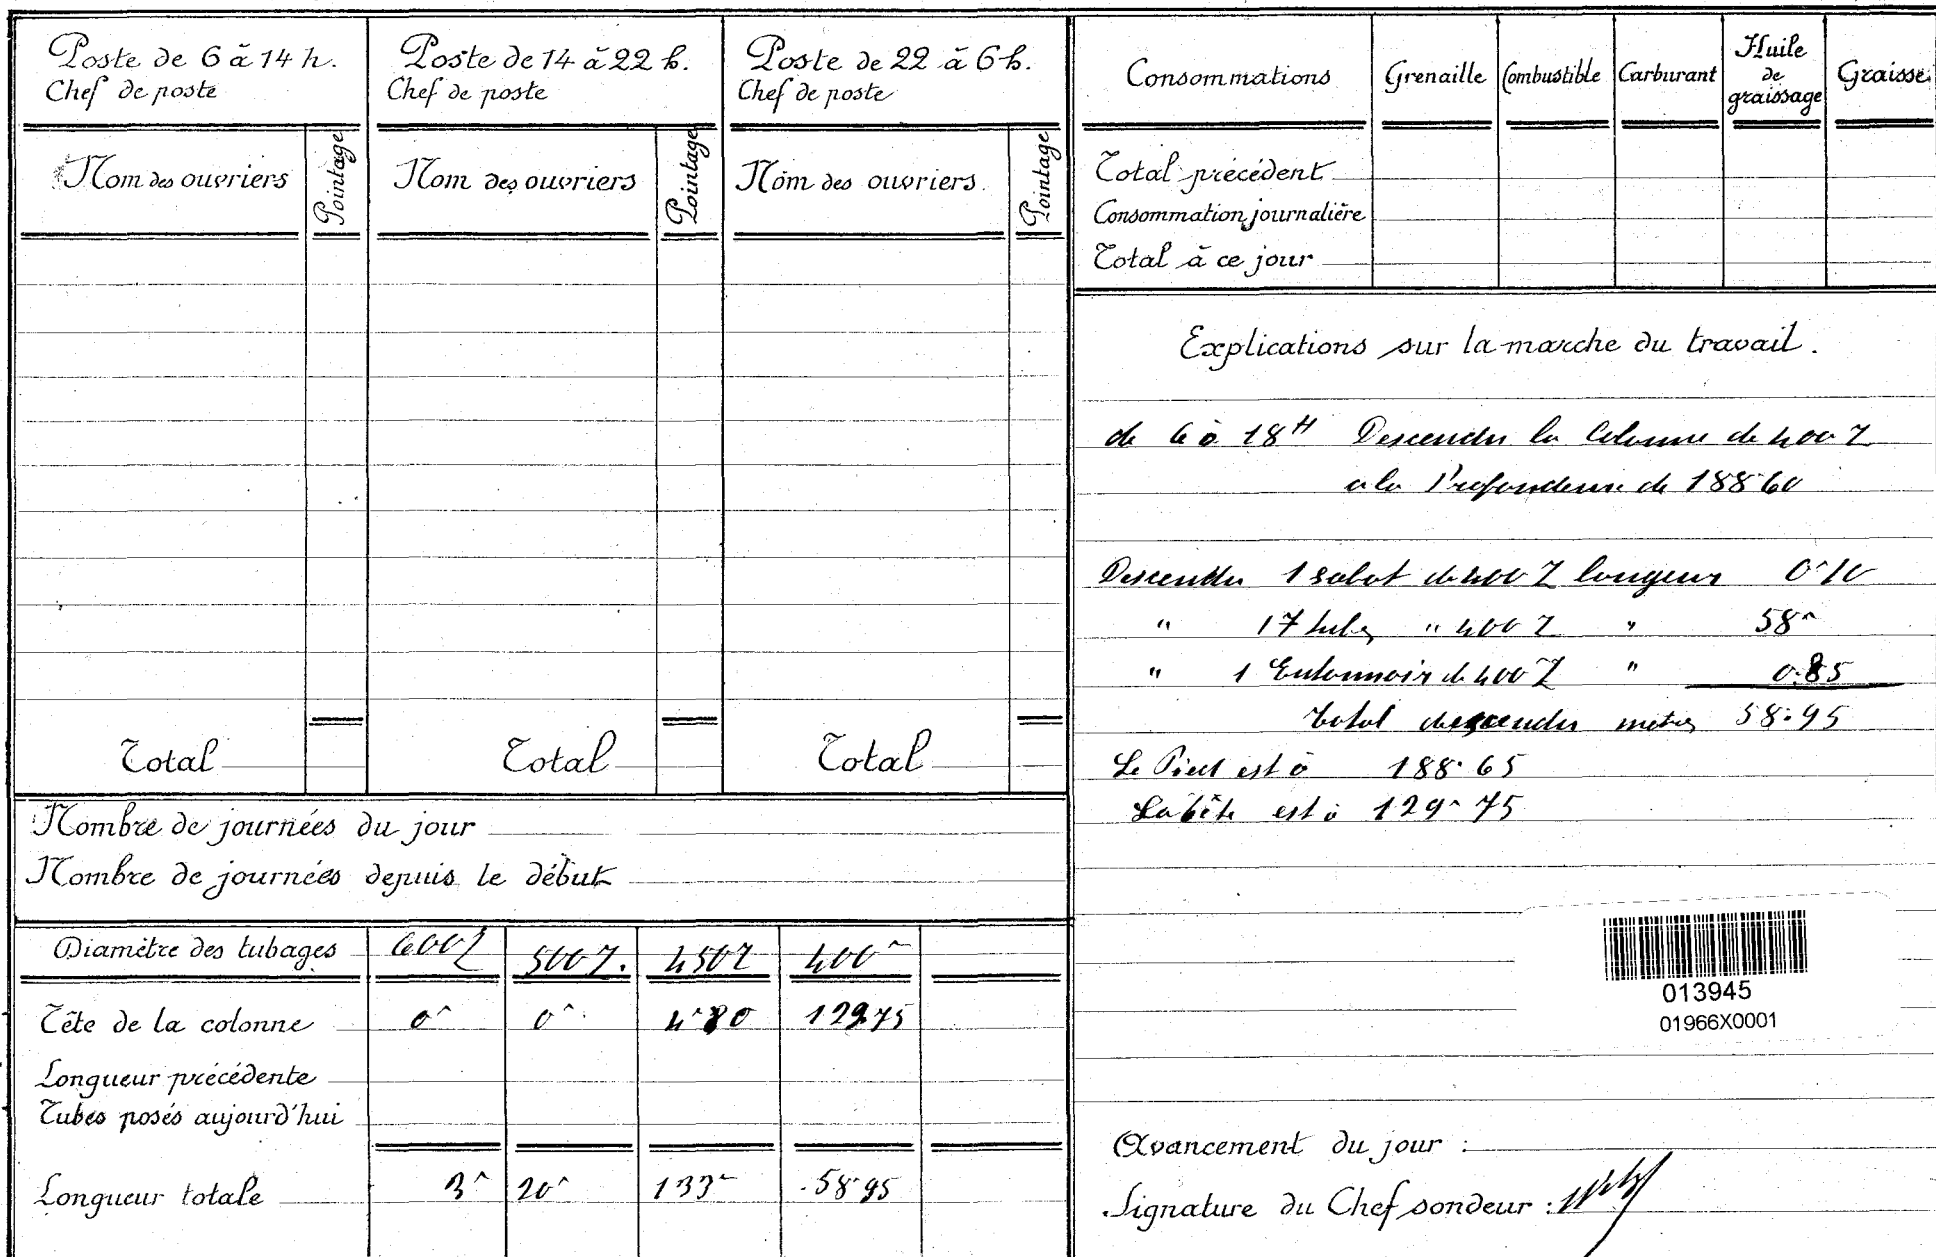 Poste de 6 à 14 h.
Chef de poste
Nom des ouvriers
Pointage
Total
Poste de 14 à 22 h.
Chef de poste
Nom des ouvriers
Pointage
Total
Poste de 22 à 6 h.
Chef de poste
Nom des ouvriers.
Pointage
Total
Nombre de journées du jour
Nombre de journées depuis le début
Diamètre des tubages 600 500 450 400
Tête de la colonne 0m 0m 4m80 129.75
Longueur précédente
Tubes posés aujourd'hui
Longueur totale 3m 20m 133m 58.95
Consommations Grenaille Combustible Carburant Huile de graissage Graisse
Total précédent
Consommation journalière
Total à ce jour
Explications sur la marche du travail.
de 6 à 18H Descendu la Colonne de 400
a la Profondeur de 188.60
Descendu 1 sabot de 400 longueur 0m10
" 17 tubes " 400 " 58m
" 1 Entonnoir de 400 " 0.85
Total descendu metres 58.95
Le Pied est à 188.65
La tête est à 129m75
013945
01966X0001
Avancement du jour :
Signature du Chef sondeur :